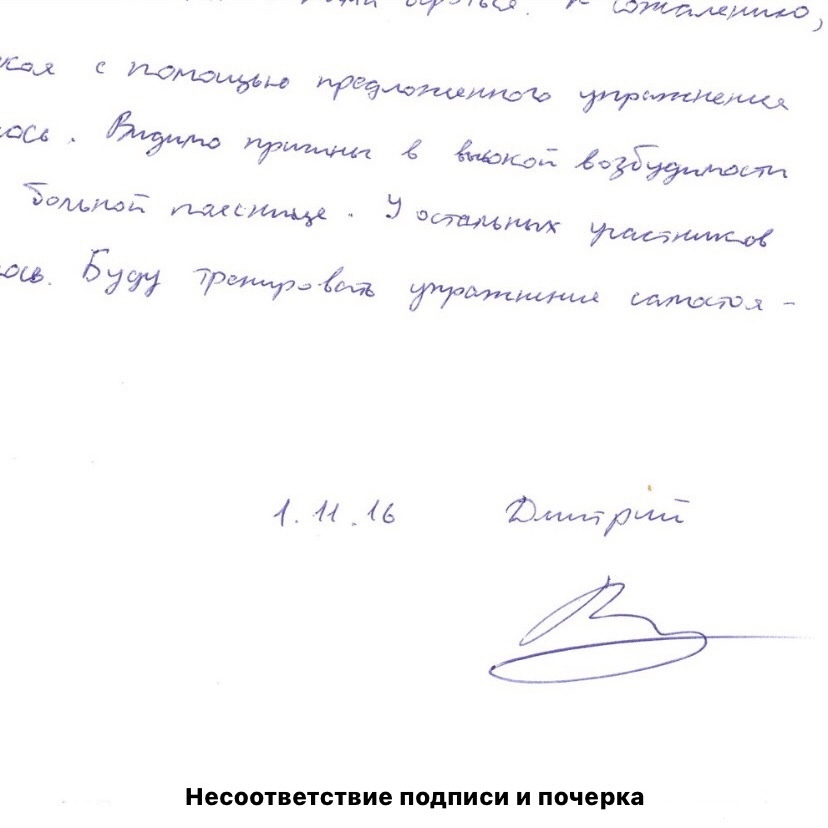 К сожалению,
с помощью предложенного упражнения
лось. Видимо причины в высокой возбудимости
больной пояснице. У остальных участников
лось. Буду тренировать упражнение самостоя-
1.11.16 Дмитрий
Несоответствие подписи и почерка